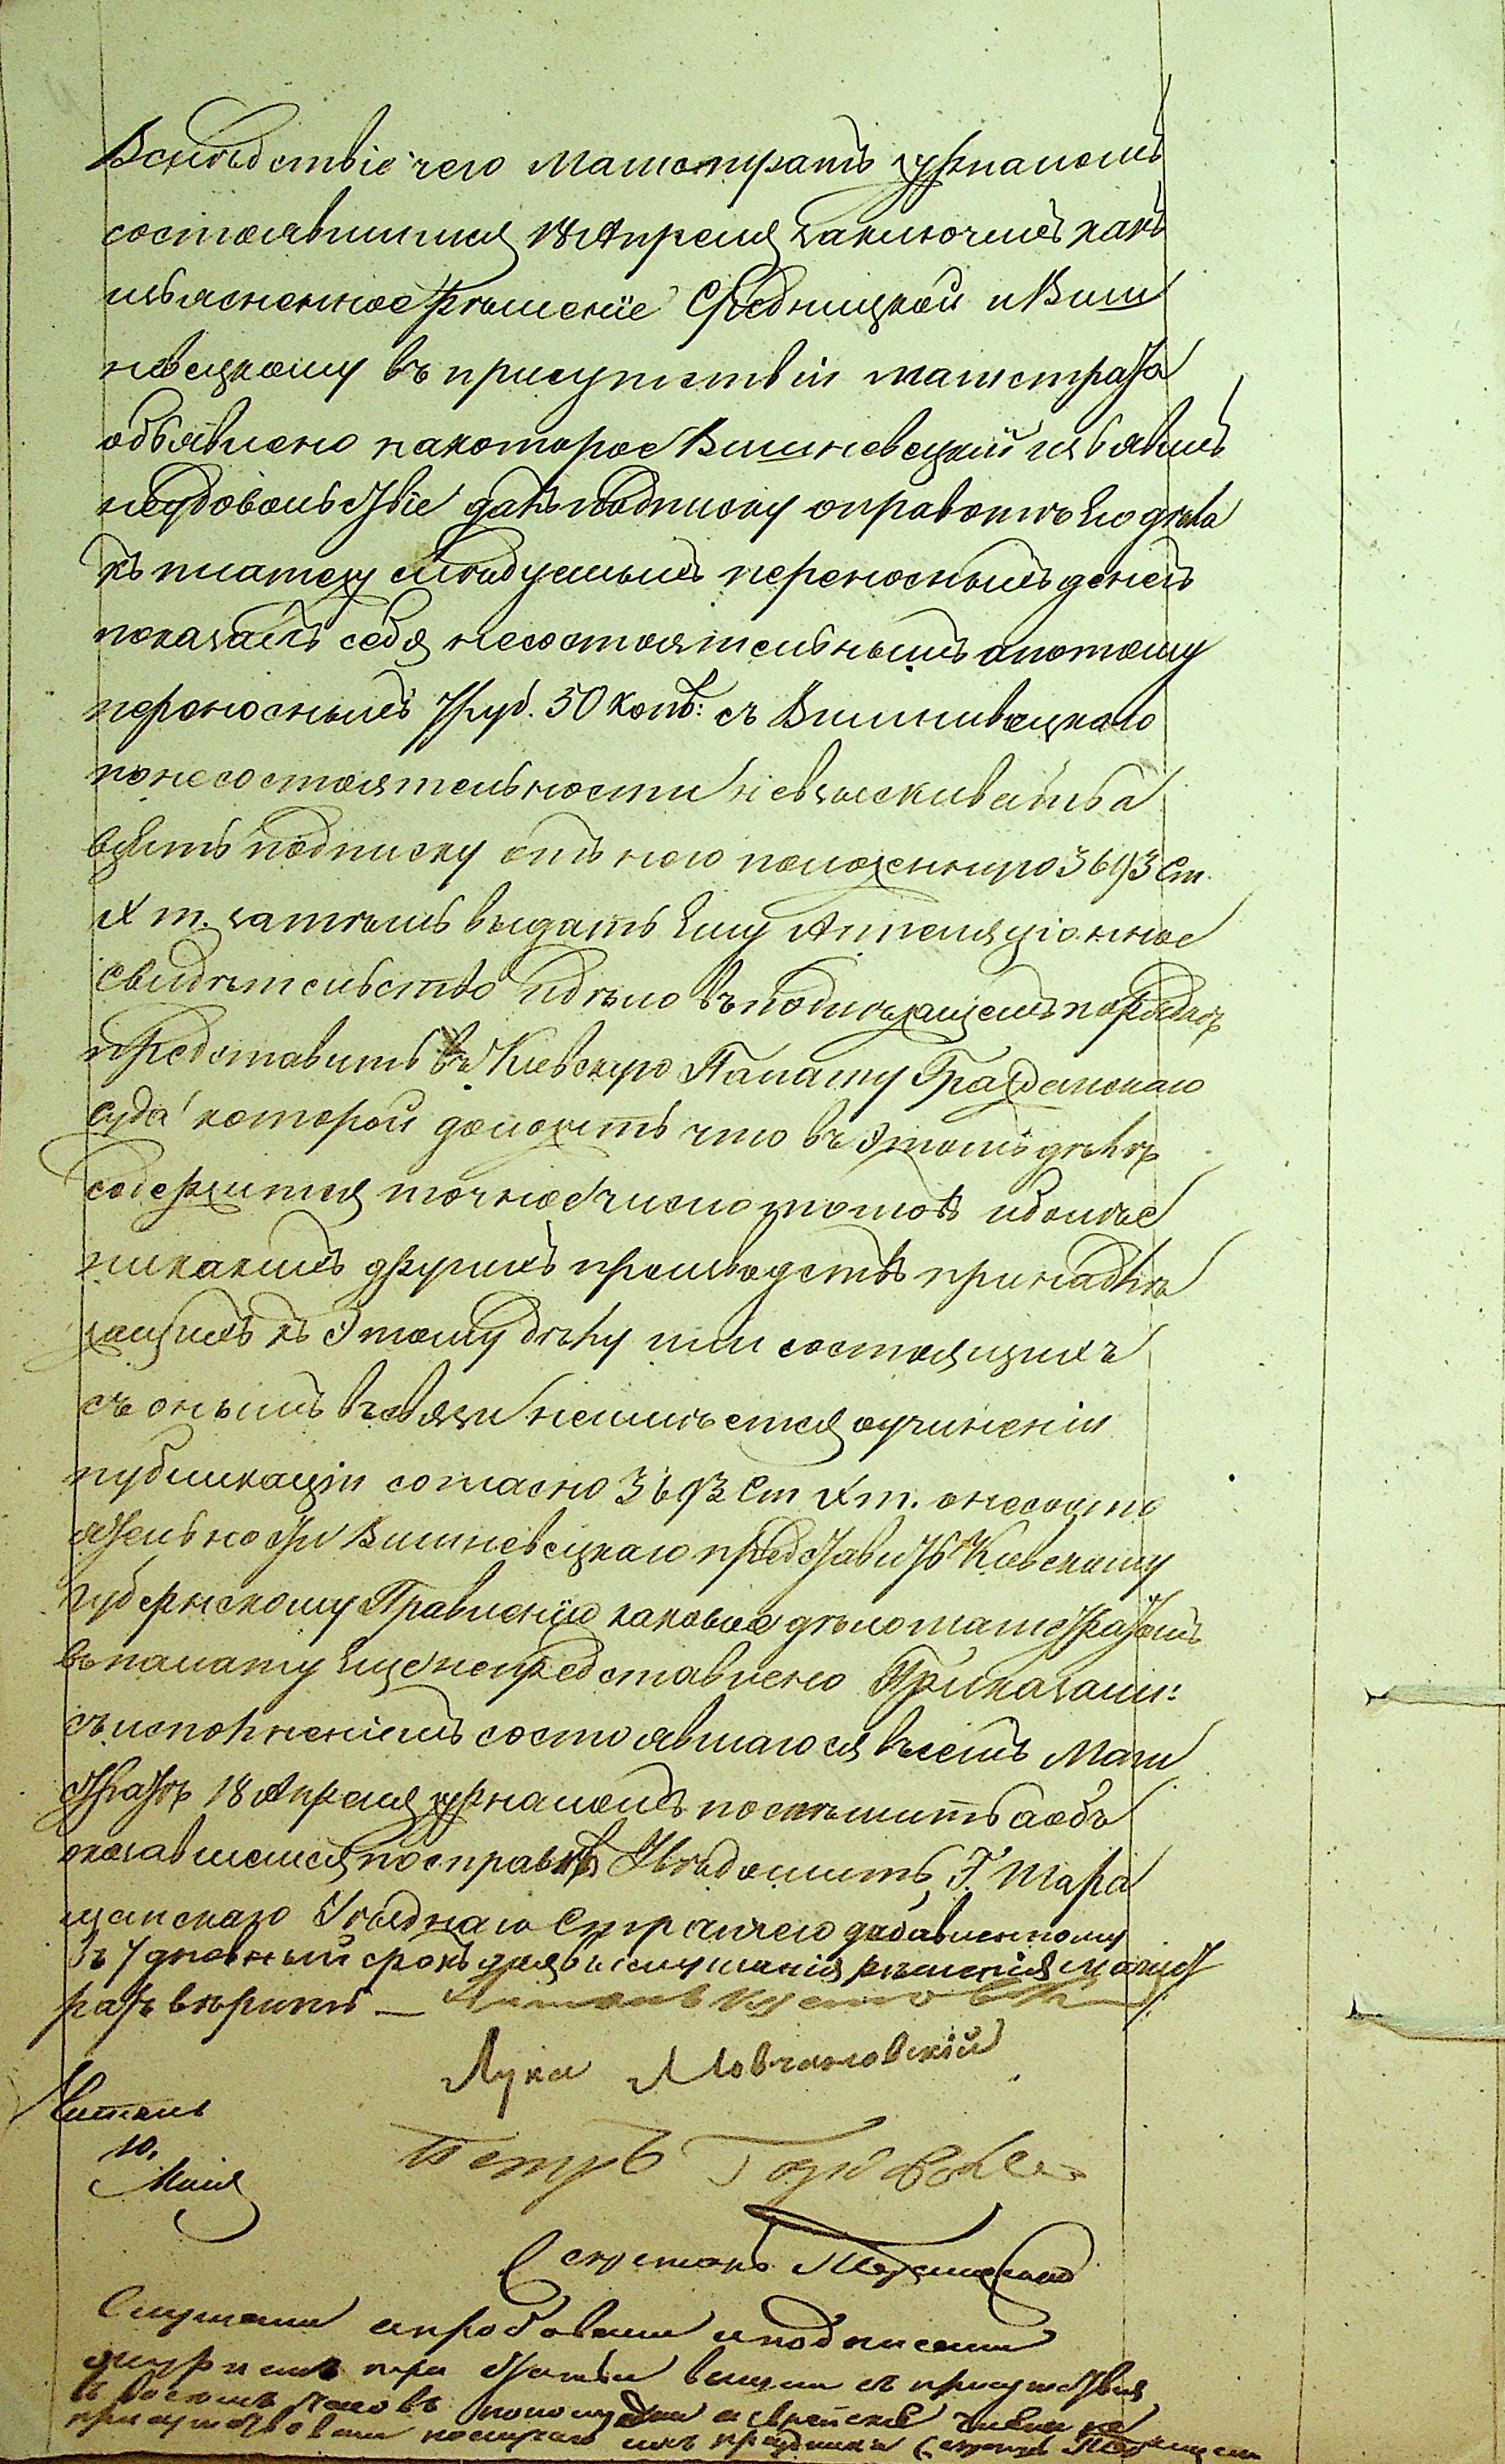 Вслѣдствіе чего Магистратъ журналомъ
состоявшимся 18 Апреля заключилъ какъ
изъясненное рѣшеніе Средницкой и Виш
невецкому въ присутствіи магистрата
объявлено на которое Вишневецкій изъявилъ
неудовольствіе далъ подписку о правотѣ Его дѣла
къ платежу слѣдуемыхъ переносныхъ денегъ
показалъ себя несостоятельнымъ а потому
переносныхъ 7 руб. 50 коп: съ Вишневецкаго
по несостоятельности невзыскивать а
взять подписку отъ него положенную 3693 Ст.
X т. затѣмъ выдать Ему Аппеляціонное
свидѣтельство и дѣло въ подлежащемъ порядкѣ
представить въ Кіевскую Палату Гражданскаго
суда которой доложить что въ Этомъ дѣлѣ
содержится точное число листовъ и болѣе
никакихъ другихъ производствъ принадле
жащихъ къ Этому дѣлу или состоящихъ
съ онымъ въ связи неимѣется о учиненіи
публикаціи согласно 3693 Ст X т. о несосто
ятельности Вишневецкаго представить Кіевскому
Губернскому Правленію каковое дѣло магистратомъ
въ палату Еще непредставлено Приказали:
съ исполненіемъ состоявшагося въ семъ Маги
стратѣ 18 Апреля журналомъ поспѣшить а объ
оказавшемся по справкѣ Увѣдомить Г. Тара
щанскаго Уѣзднаго Стряпчего
въ 7 дневный срокъ для выслушанія рѣшенія магист
ратъ вѣрить —
Лука Мовчановскій
Читалъ
10.
Маія
Петръ
Секретарь
Слушали апробовали и подписали
журналъ три статьи вышли съ присутствія